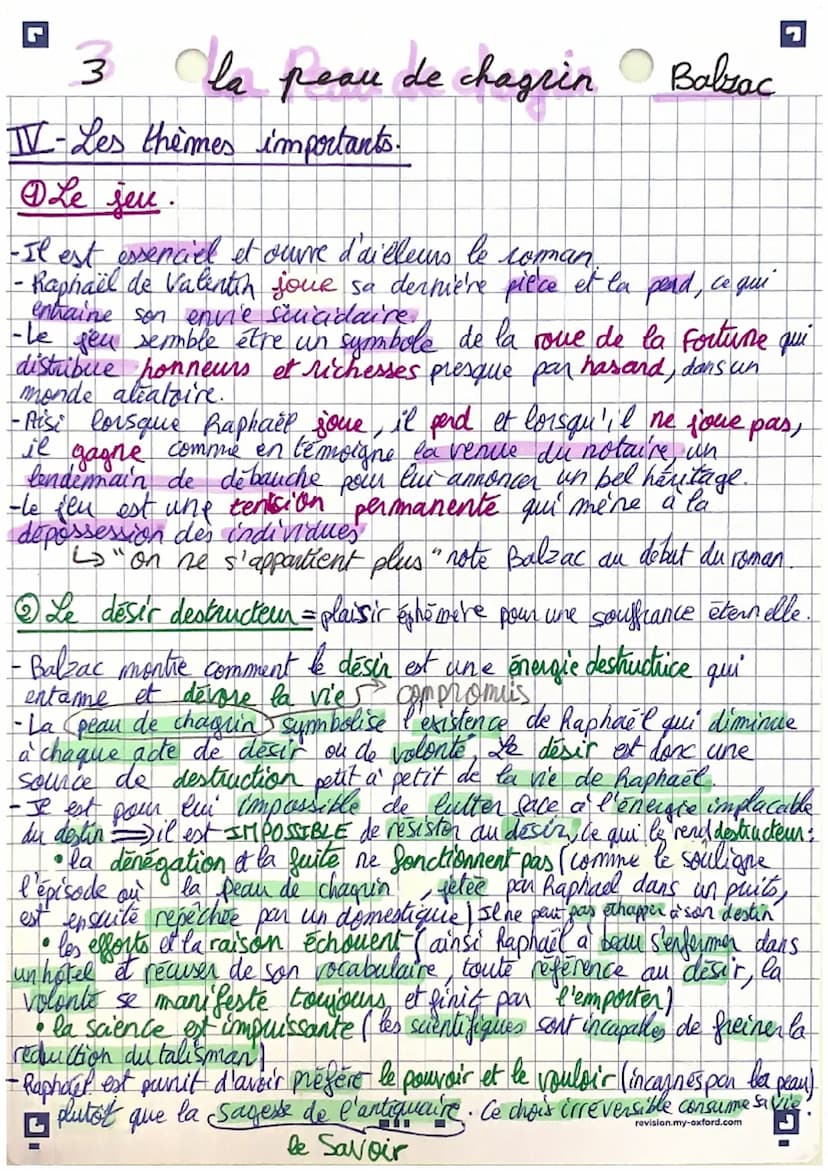 3 la peau de chagrin Balzac
IV - Les thèmes importants.
① Le jeu.
- Il est essenciel et ouvre d'ailleurs le roman
- Raphaël de Valentin joue sa dernière pièce et la perd, ce qui
entraine son envie suicidaire.
- Le jeu semble être un symbole de la roue de la fortune qui
distribue honneurs et richesses presque par hasard, dans un
monde aléatoire.
- Aisi lorsque Raphaël joue, il perd et lorsqu'il ne joue pas,
il gagne comme en témoigne la venue du notaire, un
lendemain de débauche pour lui annoncer un bel héritage.
- Le jeu est une tension permanente qui mène à la
dépossession des individues
↳ "on ne s'appartient plus" note Balzac au début du roman.
② Le désir destructeur = plaisir éphémère pour une souffrance éternelle.
- Balzac montre comment le désir est une énergie destructrice qui
entame et dévore la vie → compromis
- La peau de chagrin symbolise l'existence de Raphaël qui diminue
à chaque acte de désir ou de volonté. Le désir est donc une
source de destruction petit à petit de la vie de Raphaël
- Il est pour lui impossible de lutter face à l'énergie implacable
du destin ⇒ il est IMPOSSIBLE de résister au désir, ce qui le rend destructeur :
• la dénégation et la fuite ne fonctionnent pas (comme le souligne
l'épisode où la peau de chagrin, jetée par Raphaël dans un puits,
est ensuite repêchée par un domestique) Il ne peut pas échapper à son destin
• les efforts et la raison échouent (ainsi Raphaël a beau s'enfermer dans
un hôtel et récuser de son vocabulaire, toute référence au désir, la
volonté se manifeste toujours et finit par l'emporter)
• la science est impuissante (les scientifiques sont incapables de freiner la
réduction du talisman)
- Raphaël est punit d'avoir préféré le pouvoir et le vouloir (incarnés par la peau)
plutôt que la sagesse de l'antiquaire. Ce choix irréversible consume sa vie.
revision.my-oxford.com
le Savoir